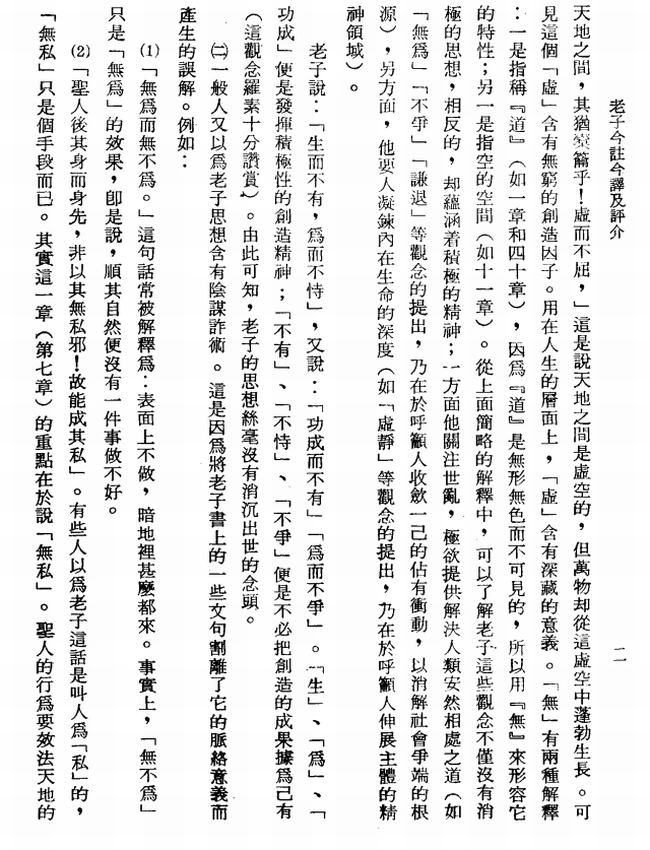 老子今註今譯及評介
一二
天地之間，其猶橐籥乎！虛而不屈，」這是說天地之間是虛空的，但萬物却從這虛空中蓬勃生長。可
見這個「虛」含有無窮的創造因子。用在人生的層面上，「虛」含有深藏的意義。「無」有兩種解釋
：一是指稱『道』（如一章和四十章），因爲『道』是無形無色而不可見的，所以用『無』來形容它
的特性；另一是指空的空間（如十一章）。從上面簡略的解釋中，可以了解老子這些觀念不僅沒有消
極的思想，相反的，却蘊涵着積極的精神；一方面他關注世亂，極欲提供解決人類安然相處之道（如
「無爲」「不爭」「謙退」等觀念的提出，乃在於呼籲人收斂一己的佔有衝動，以消解社會爭端的根
源），另方面，他要人凝鍊內在生命的深度（如「虛靜」等觀念的提出，乃在於呼籲人伸展主體的精
神領域）。
老子說：「生而不有，爲而不恃」，又說：「功成而不有」「爲而不爭」。「生」、「爲」、「
功成」便是發揮積極性的創造精神；「不有」、「不恃」、「不爭」便是不必把創造的成果據爲己有
（這觀念羅素十分讚賞）。由此可知，老子的思想絲毫沒有消沉出世的念頭。
㈡一般人又以爲老子思想含有陰謀詐術。這是因爲將老子書上的一些文句割離了它的脈絡意義而
產生的誤解。例如：
⑴「無爲而無不爲。」這句話常被解釋爲：表面上不做，暗地裡甚麼都來。事實上，「無不爲」
只是「無爲」的效果，卽是說，順其自然便沒有一件事做不好。
⑵「聖人後其身而身先，非以其無私邪！故能成其私」。有些人以爲老子這話是叫人爲「私」的，
「無私」只是個手段而已。其實這一章（第七章）的重點在於說「無私」。聖人的行爲要效法天地的